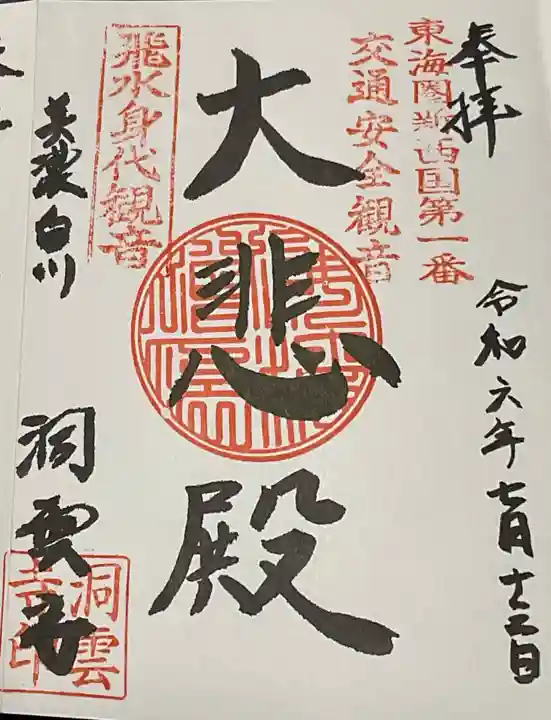 奉拝
東海圏新西国第一番
交通安全観音
令和六年七月十二日
大悲殿
飛水身代観音
美濃白川
洞雲寺
洞雲寺印